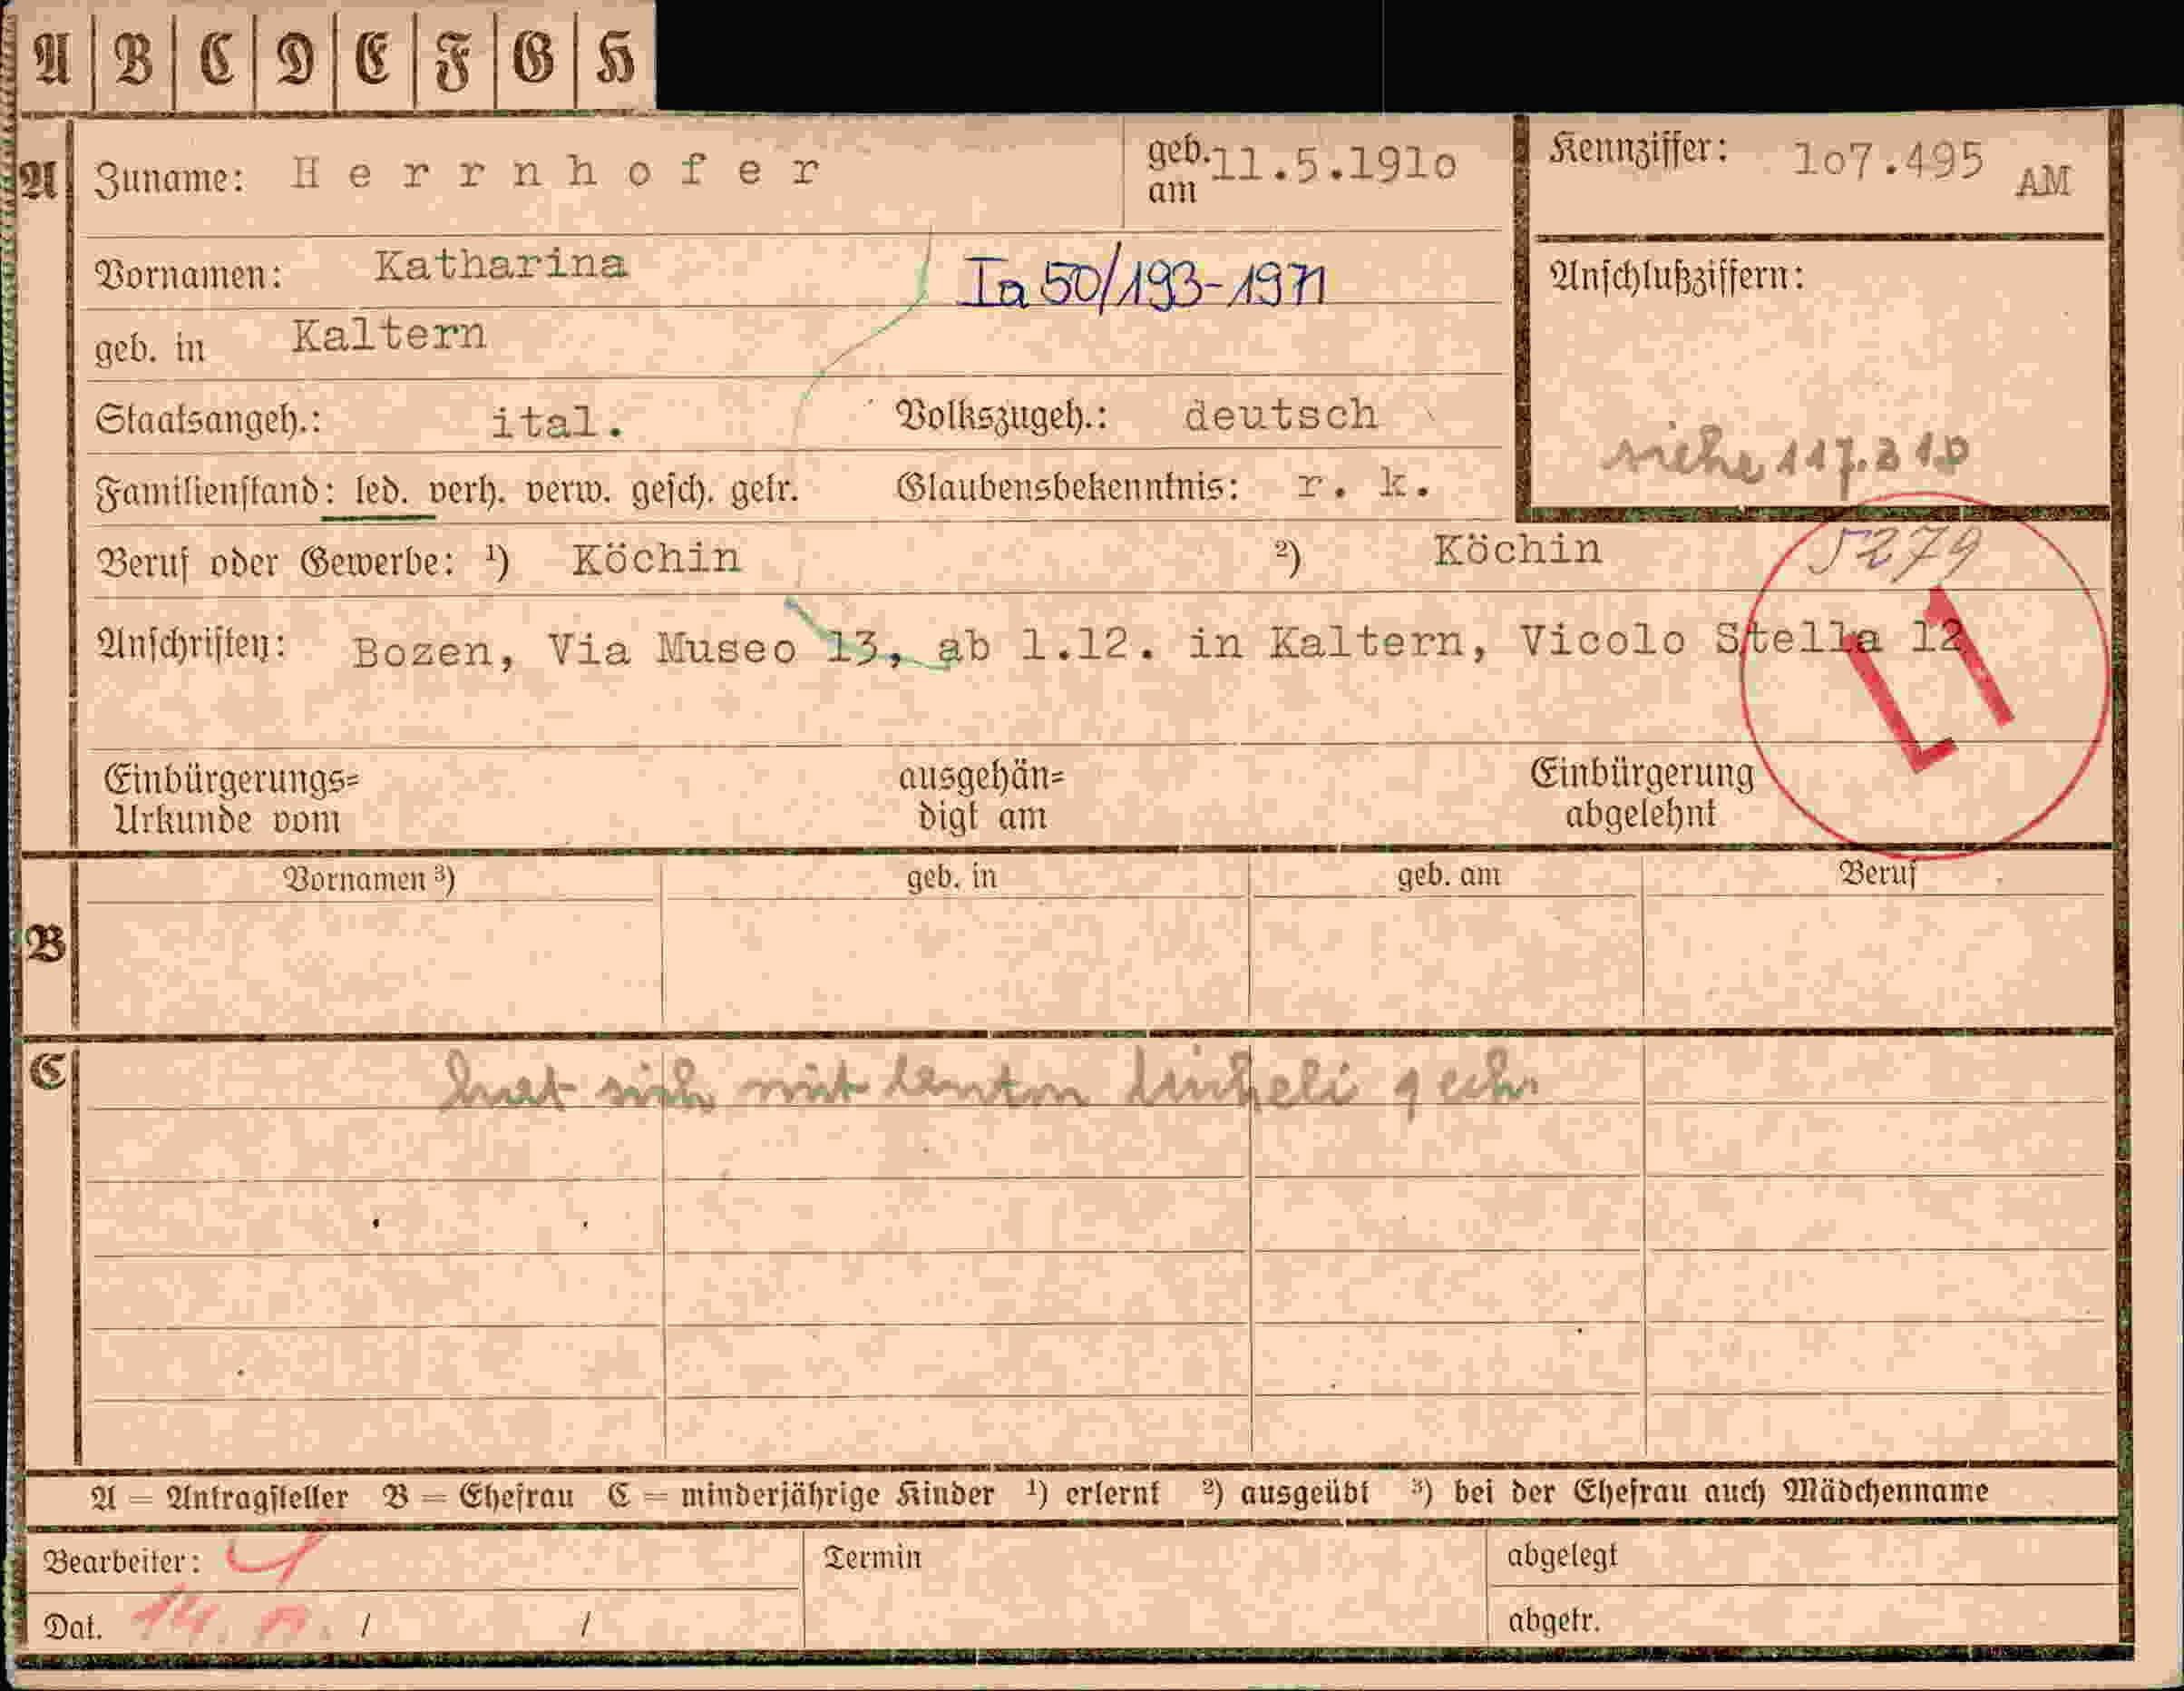 A B C D E F G H
A
Zuname: Herrnhofer
geb. am 11.5.1910
Kennziffer: 107.495 AM
Vornamen: Katharina
Ia 50/193-1971
Anschlußziffern:
geb. in Kaltern
Staatsangeh.: ital. Volkszugeh.: deutsch
siehe 117.310
Familienstand: led. verh. verw. gesch. getr. Glaubensbekenntnis: r. k.
Beruf oder Gewerbe: ¹) Köchin ²) Köchin
5279
Anschriften: Bozen, Via Museo 13, ab 1.12. in Kaltern, Vicolo Stella 12
L1
Einbürgerungs=
Urkunde vom
ausgehän=
digt am
Einbürgerung
abgelehnt
B
Vornamen ³) geb. in geb. am Beruf
C
hat sich mit
A = Antragsteller B = Ehefrau C = minderjährige Kinder ¹) erlernt ²) ausgeübt ³) bei der Ehefrau auch Mädchenname
Bearbeiter:
Termin
abgelegt
Dat. 14. / /
abgetr.